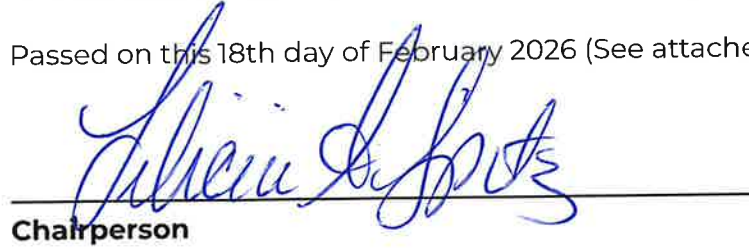 Passed on this 18th day of February 2026 (See attache
Chairperson